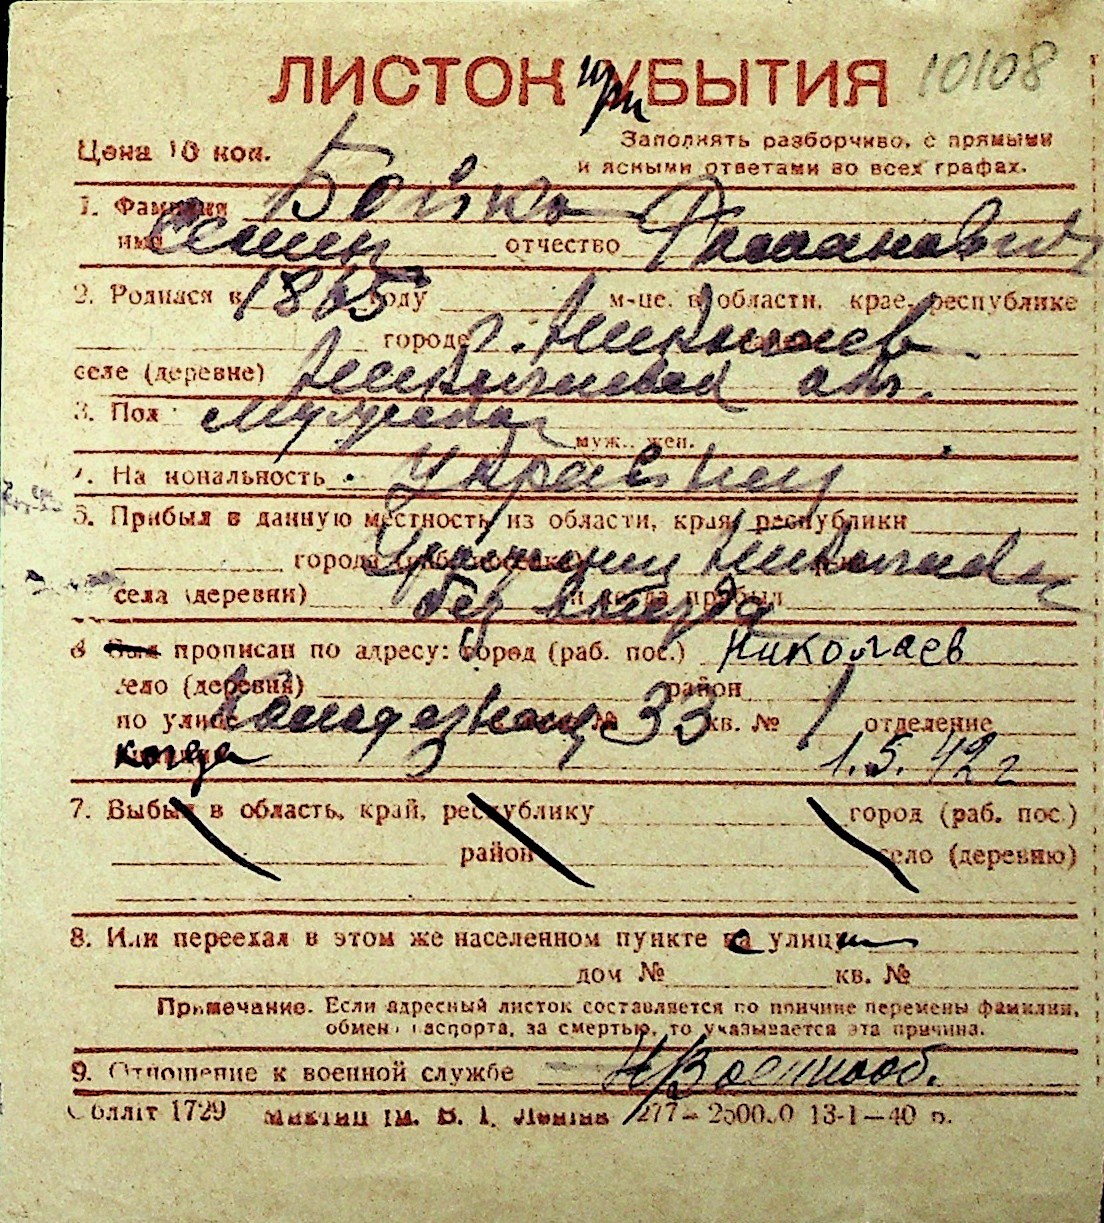 ЛИСТОК при УБЫТИЯ 10108
Цена 10 коп.
Заполнять разборчиво, с прямыми
и ясными ответами во всех графах.
1. Фамилия Бойко
имя Семен отчество Романович
2. Родился в 1865 году м-це. в области, крае, республике
городе г. Николаев
селе (деревне) Николаевск обл.
3. Пол мужской
муж., жен.
4. Национальность украинец
5. Прибыл в данную местность из области, края, республики
города Николаев
села (деревни) и когда прибыл без выезда
6 Был прописан по адресу: город (раб. пос.) Николаев
село (деревня) район
по улице № 33 кв. № 1 отделение
когда 1.5.42 г
7. Выбыл в область, край, республику город (раб. пос.)
район село (деревню)
8. Или переехал в этом же населенном пункте с улицы
дом № кв. №
Примечание. Если адресный листок составляется по причине перемены фамилии,
обмена паспорта, за смертью, то указывается эта причина.
9. Отношение к военной службе Н/Военнооб.
Обліт 1729 ім. В. І. Леніна 277 — 250000 13-1—40 р.